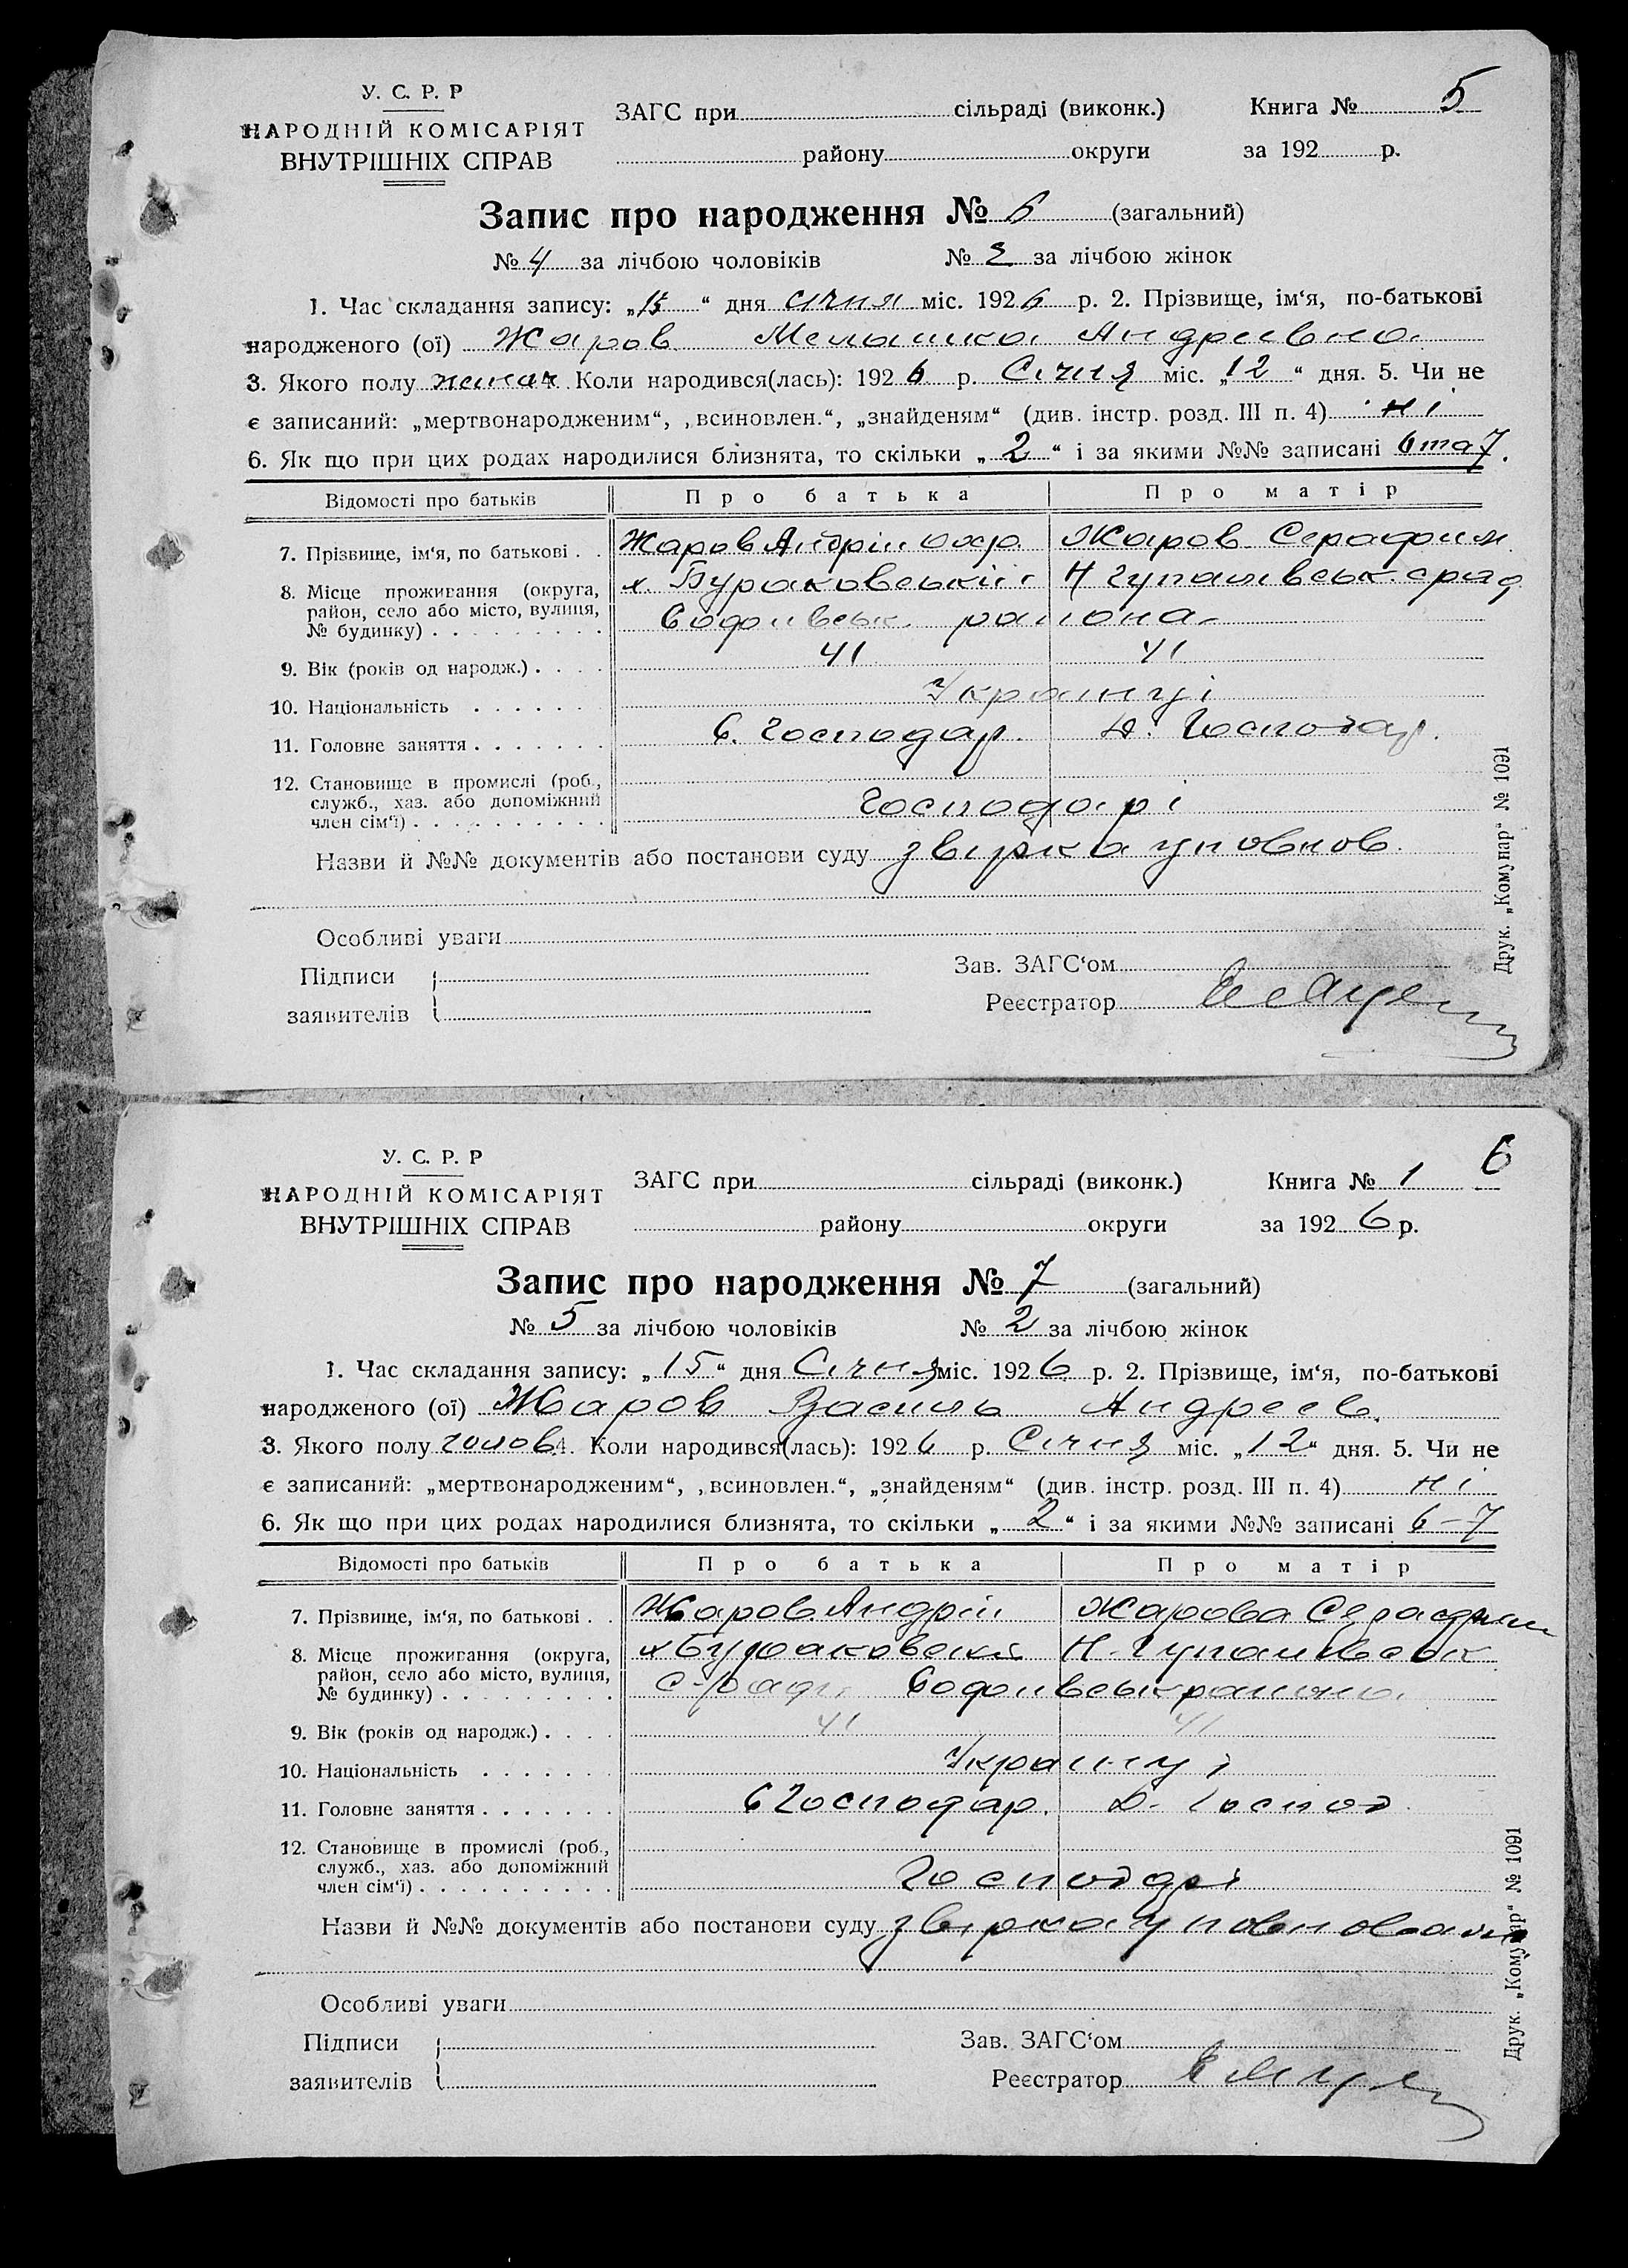 У. С. Р. Р
НАРОДНІЙ КОМІСАРІЯТ
ВНУТРІШНІХ СПРАВ
ЗАГС при сільраді (виконк.)
району округи
Книга № 5
за 192 р.
Запис про народження № 6 (загальний)
№ 4 за лічбою чоловіків № 2 за лічбою жінок
1. Час складання запису: „15“ дня січня міс. 1926 р. 2. Прізвище, ім‘я, по-батькові
народженого (ої) Жаров Меланка Андреевна
3. Якого полу жіноч 4. Коли народився(лась): 1926 р. Січня міс. „12“ дня. 5. Чи не
є записаний: „мертвонародженим“, „всиновлен.“, „знайденям“ (див. інстр. розд. III п. 4) ні
6. Як що при цих родах народилися близнята, то скільки „2“ і за якими №№ записані 6 та 7.
Відомості про батьків Про батька Про матір
7. Прізвище, ім‘я, по батькові . . Жаров Андрій Жаров Серафим
8. Місце проживання (округа, район, село або місто, вулиця, № будинку) х. Бураковський Н Чупалівськ. срад
Софиівськ. раіона
9. Вік (років од народж.) 41 41
10. Національність Украінці
11. Головне заняття С. Господар. Д. Господар.
12. Становище в промислі (роб., служб., хаз. або допоміжний член сім‘ї) Господарі
Назви й №№ документів або постанови суду звірка уповнов.
Особливі уваги
Підписи заявителів
Зав. ЗАГС‘ом
Реєстратор
Друк. „Комунар“ № 1091
6
У. С. Р. Р
НАРОДНІЙ КОМІСАРІЯТ
ВНУТРІШНІХ СПРАВ
ЗАГС при сільраді (виконк.)
району округи
Книга № 1
за 1926 р.
Запис про народження № 7 (загальний)
№ 5 за лічбою чоловіків № 2 за лічбою жінок
1. Час складання запису: „15“ дня Січня міс. 1926 р. 2. Прізвище, ім‘я, по-батькові
народженого (ої) Жаров Василь Андреев.
3. Якого полу чолов 4. Коли народився(лась): 1926 р. Січня міс. „12“ дня. 5. Чи не
є записаний: „мертвонародженим“, „всиновлен.“, „знайденям“ (див. інстр. розд. III п. 4) ні
6. Як що при цих родах народилися близнята, то скільки „2“ і за якими №№ записані 6–7
Відомості про батьків Про батька Про матір
7. Прізвище, ім‘я, по батькові . . Жаров Андрій Жарова Серафим
8. Місце проживання (округа, район, село або місто, вулиця, № будинку) х Бураковскі Н-Чупалівськ
С-ради Софиівськ раиона
9. Вік (років од народж.) 41 41
10. Національність Украінці
11. Головне заняття С Господар. Д. Господ
12. Становище в промислі (роб., служб., хаз. або допоміжний член сім‘ї) Господарі
Назви й №№ документів або постанови суду звірка уповновал
Особливі уваги
Підписи заявителів
Зав. ЗАГС‘ом
Реєстратор
Друк. „Комунар“ № 1091